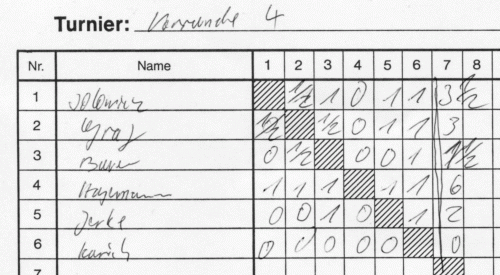 Turnier: Vorrunde 4
Nr. Name 1 2 3 4 5 6 7 8
1 ½ 1 0 1 1 3 ½
2 Graf ½ ½ 0 1 1 3
3 Bauer 0 ½ 0 0 1 1 ½
4 Hagemann 1 1 1 1 1 6
5 Jerke 0 0 1 0 1 2
6 0 0 0 0 0 0
7